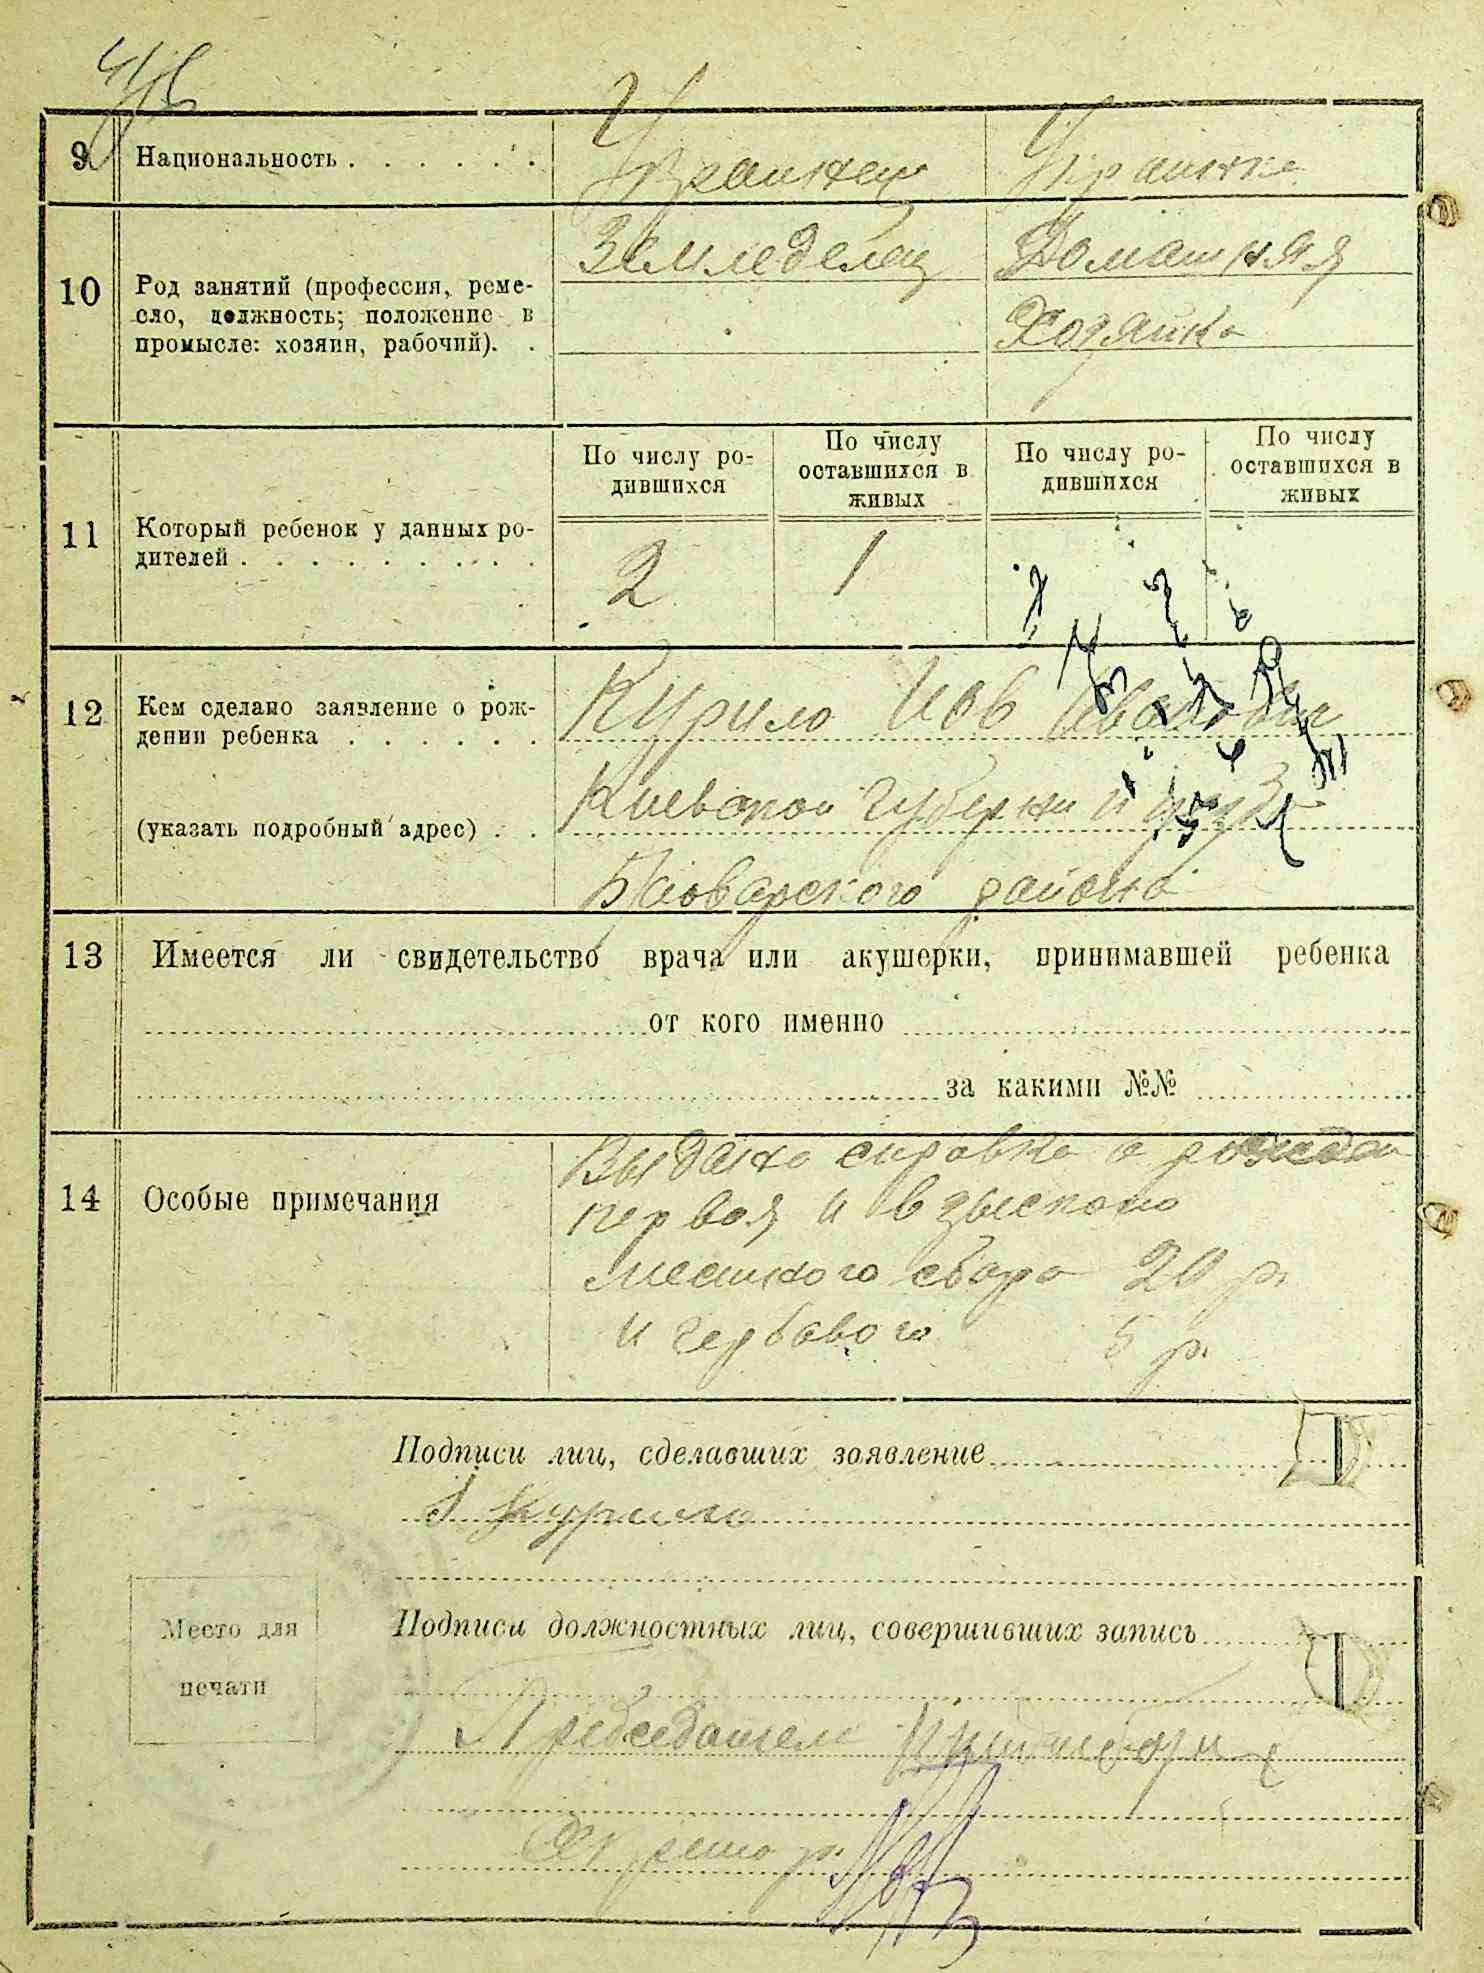 9 Национальность . . . . . . Украинец Украинка
Земледелец Домашняя
10 Род занятий (профессия, реме-
сло, должность; положение в Хозяйка
промысле: хозяин, рабочий). .
По числу ро-
дившихся
По числу
оставшихся в
живых
По числу ро-
дившихся
По числу
оставшихся в
живых
11 Который ребенок у данных ро-
дителей . . . . . . . . . . 2 1
12 Кем сделано заявление о рож- Курило Иов Иванович
дении ребенка . . . . . .
(указать подробный адрес) . . Киевской губернии и
района
13 Имеется ли свидетельство врача или акушерки, принимавшей ребенка
от кого именно
за какими №№
Выдана справка о
14 Особые примечания первая и взыскано
местного сбора 20 р.
и гербового 5 р.
Подписи лиц, сделавших заявление
Курило
Место для
печати
Подписи должностных лиц, совершивших запись
Председатель